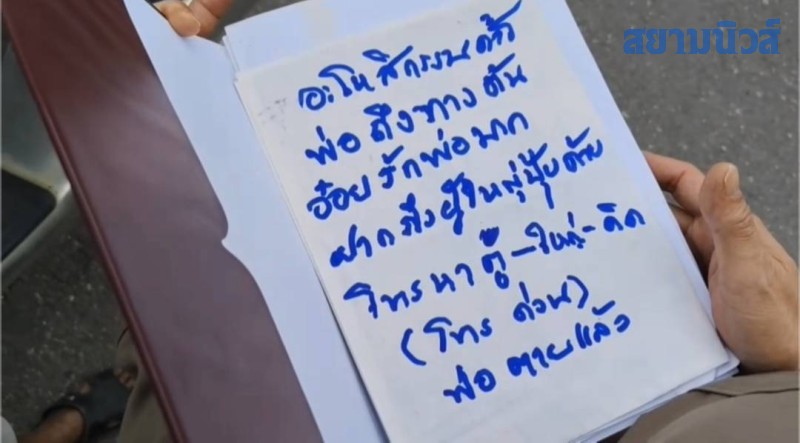 สยามนิวส์
อะโหสิกรรมด้วย
พ่อถึงทางตัน
อ๋อยรักพ่อมาก
ฝากถึงผู้ใหญ่ปุ้ยด้วย
โทรหาตู่-ใหญ่-ติ๊ก
(โทรด่วน)
พ่อตายแล้ว